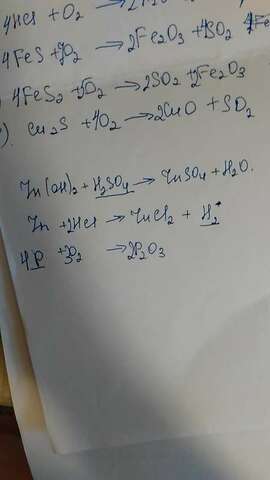 4HCl + O2 →
4FeS + 7O2 → 2Fe2O3 + 4SO2
4FeS2 + O2 → 2SO2 + 2Fe2O3
). Cu2S + O2 → 2CuO + SO2
Zn(OH)2 + H2SO4 → ZnSO4 + H2O.
Zn + 2HCl → ZnCl2 + H2
4P + 3O2 → 2P2O3